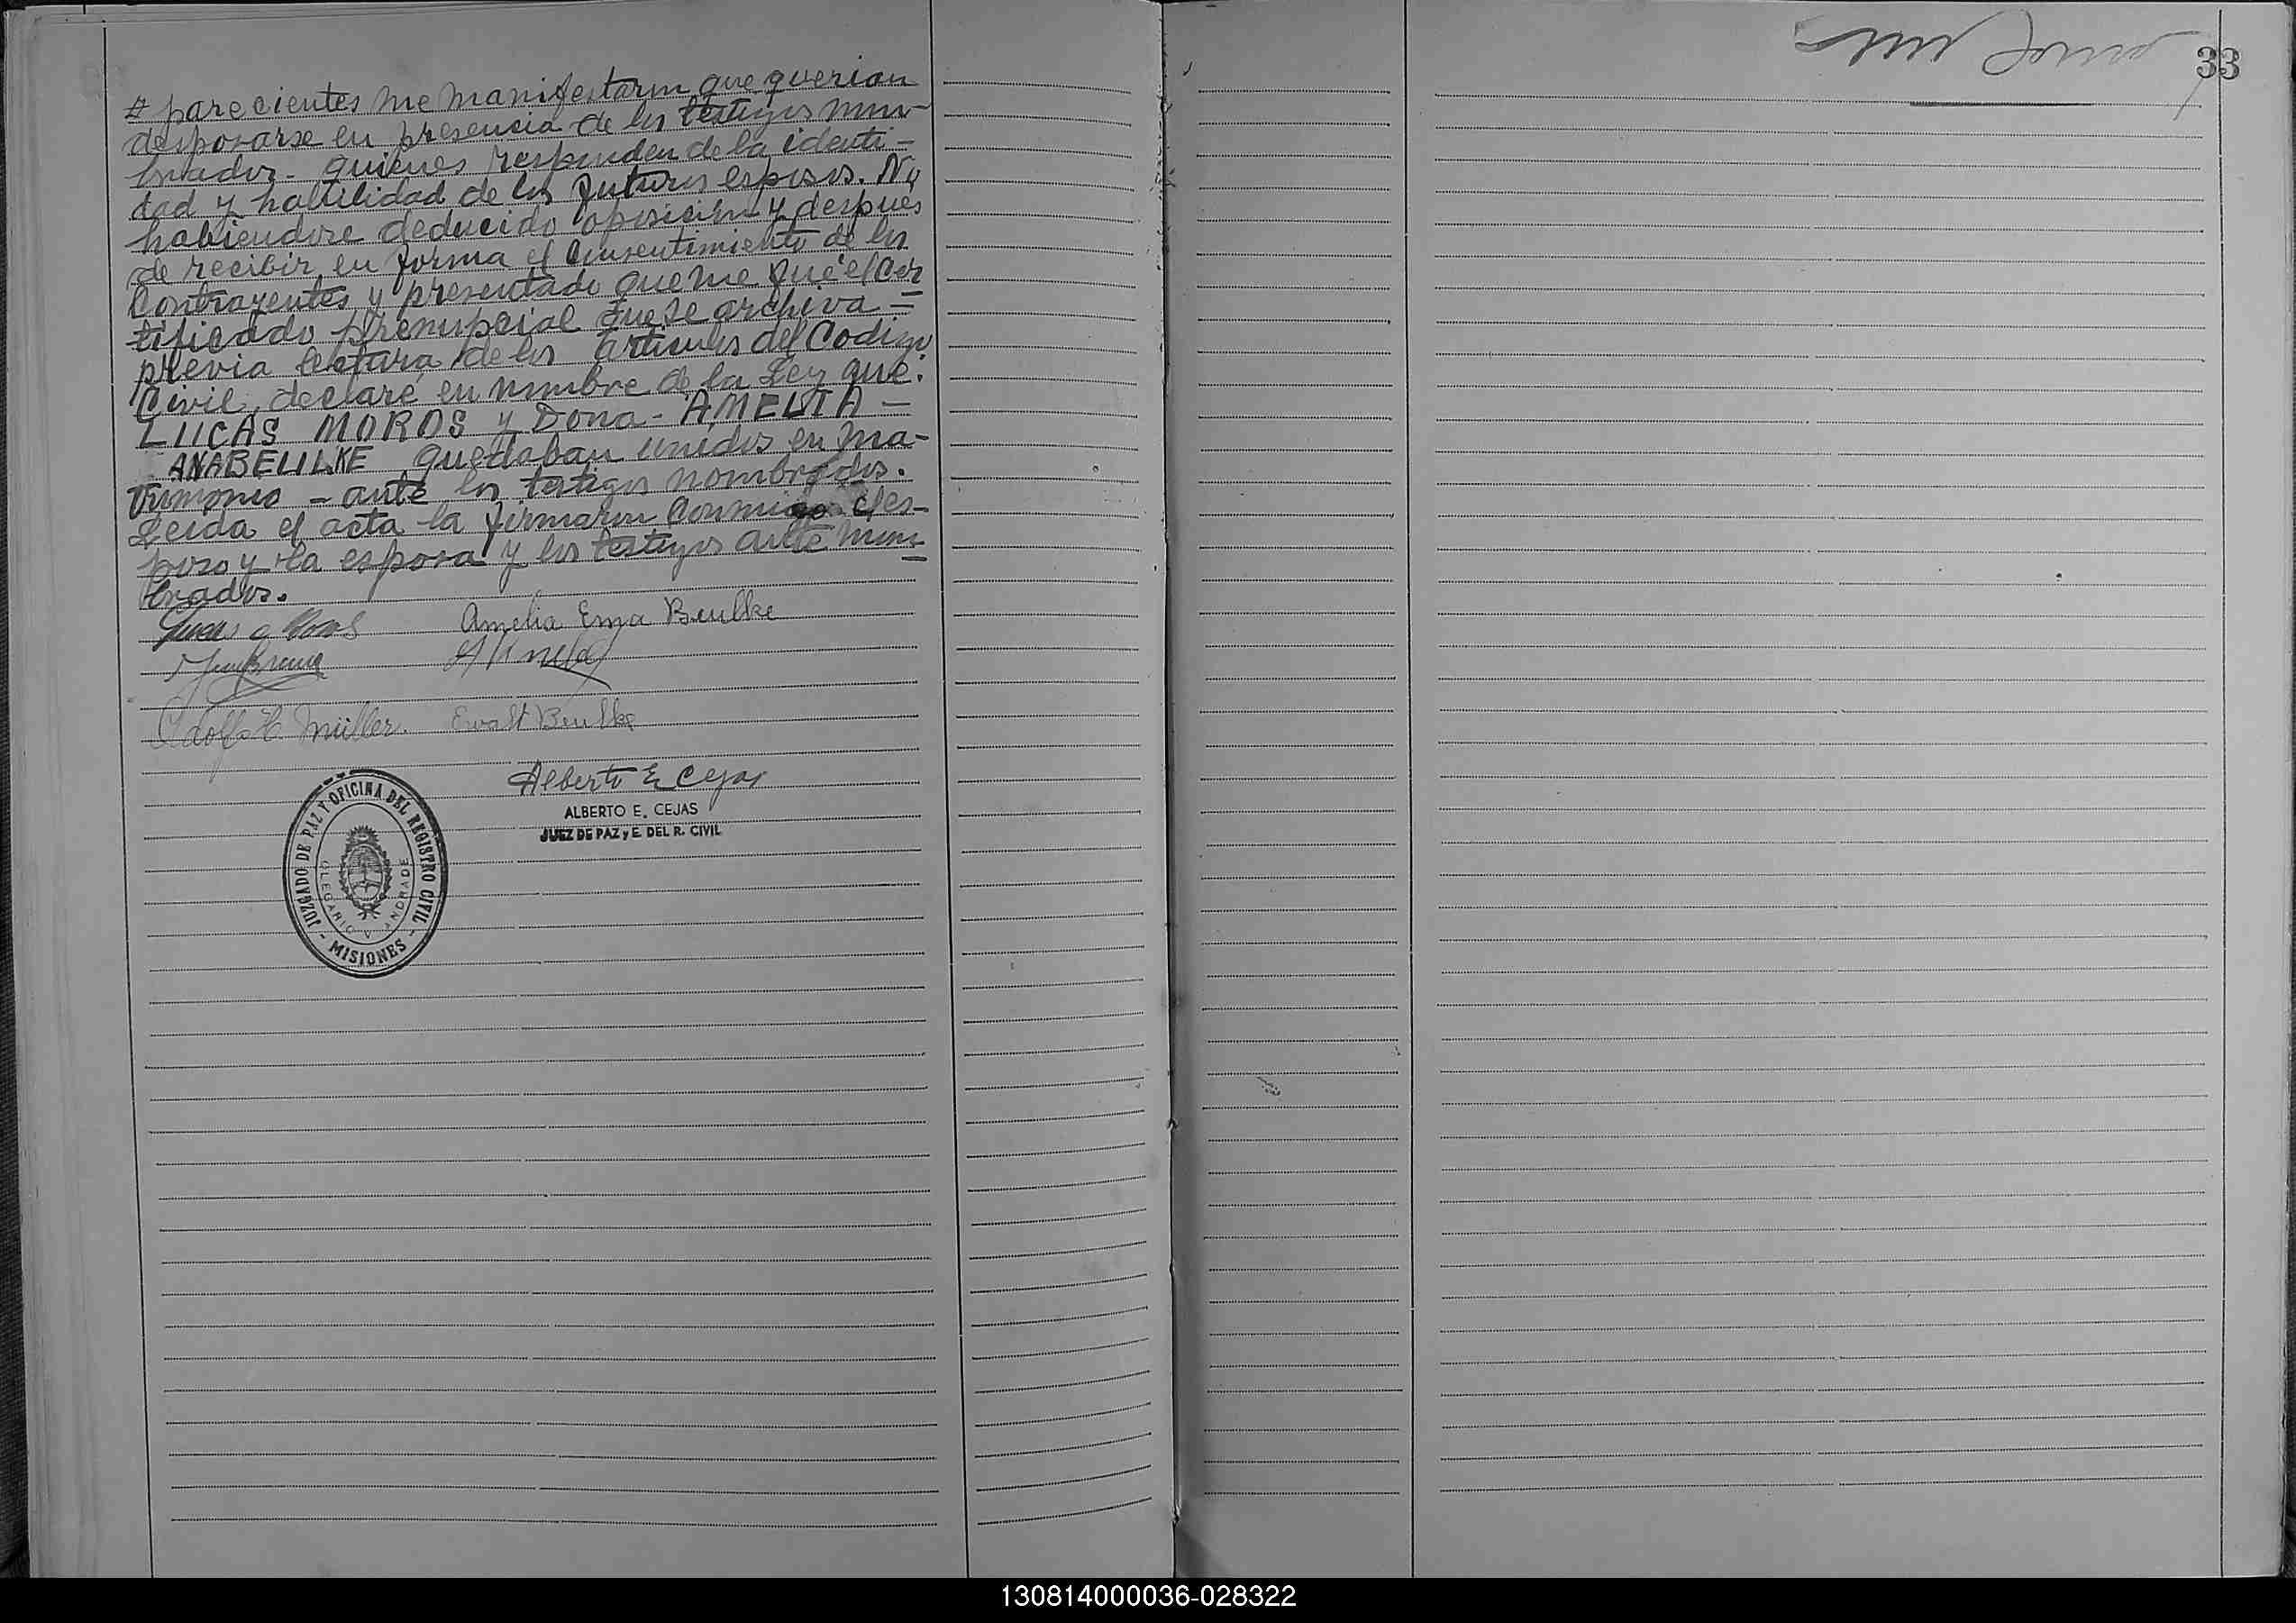 parecientes me manifestaron que querian
desposarse en presencia de los testigos nom-
brados - quienes responden de la identi-
dad y habilidad de los futuros esposos. No
habiendose deducido oposición y despues
de recibir en forma el Consentimiento de los
Contrayentes y presentado que me fué el Cer
tificado prenupcial que se archiva =
previa lectura de los articulos del Codigo
Civil, declaré en nombre de la Ley que.
LUCAS MOROS y Dona - AMELIA -
ANABEULKE quedaban unidos en ma-
trimonio - ante los testigos nombrados.
Leida el acta la firmaron Conmigo el es-
poso y la esposa y los testigos ante nom
brados.
Amelia Erna Beulke
Adolfo H. Müller. Ewalt Beulke
Alberto E Cejas
ALBERTO E. CEJAS
JUEZ DE PAZ y E. DEL R. CIVIL
JUZGADO DE PAZ Y OFICINA DEL REGISTRO CIVIL
OLEGARIO V. ANDRADE
- MISIONES -
33
130814000036-028322